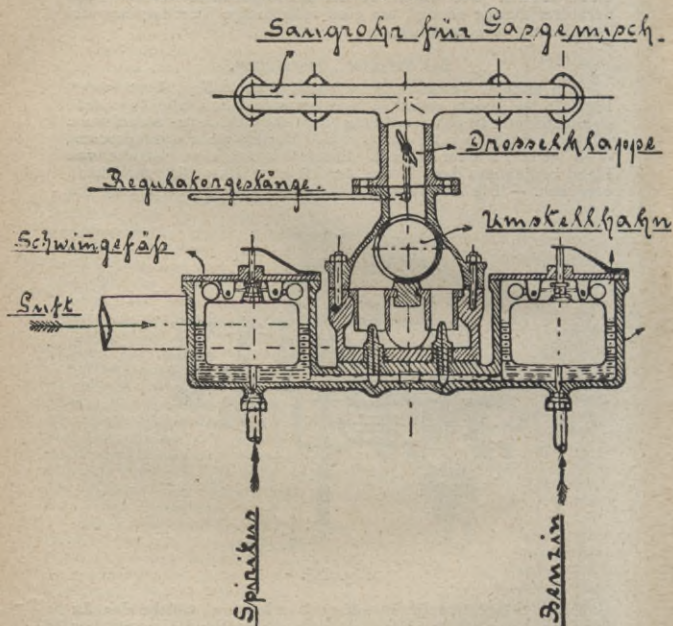 Saugrohr für Gasgemisch.
Drosselklappe
Regulatorgestänge.
Umstellhahn
Schwim̄gefäß
Luft
Spiritus
Benzin